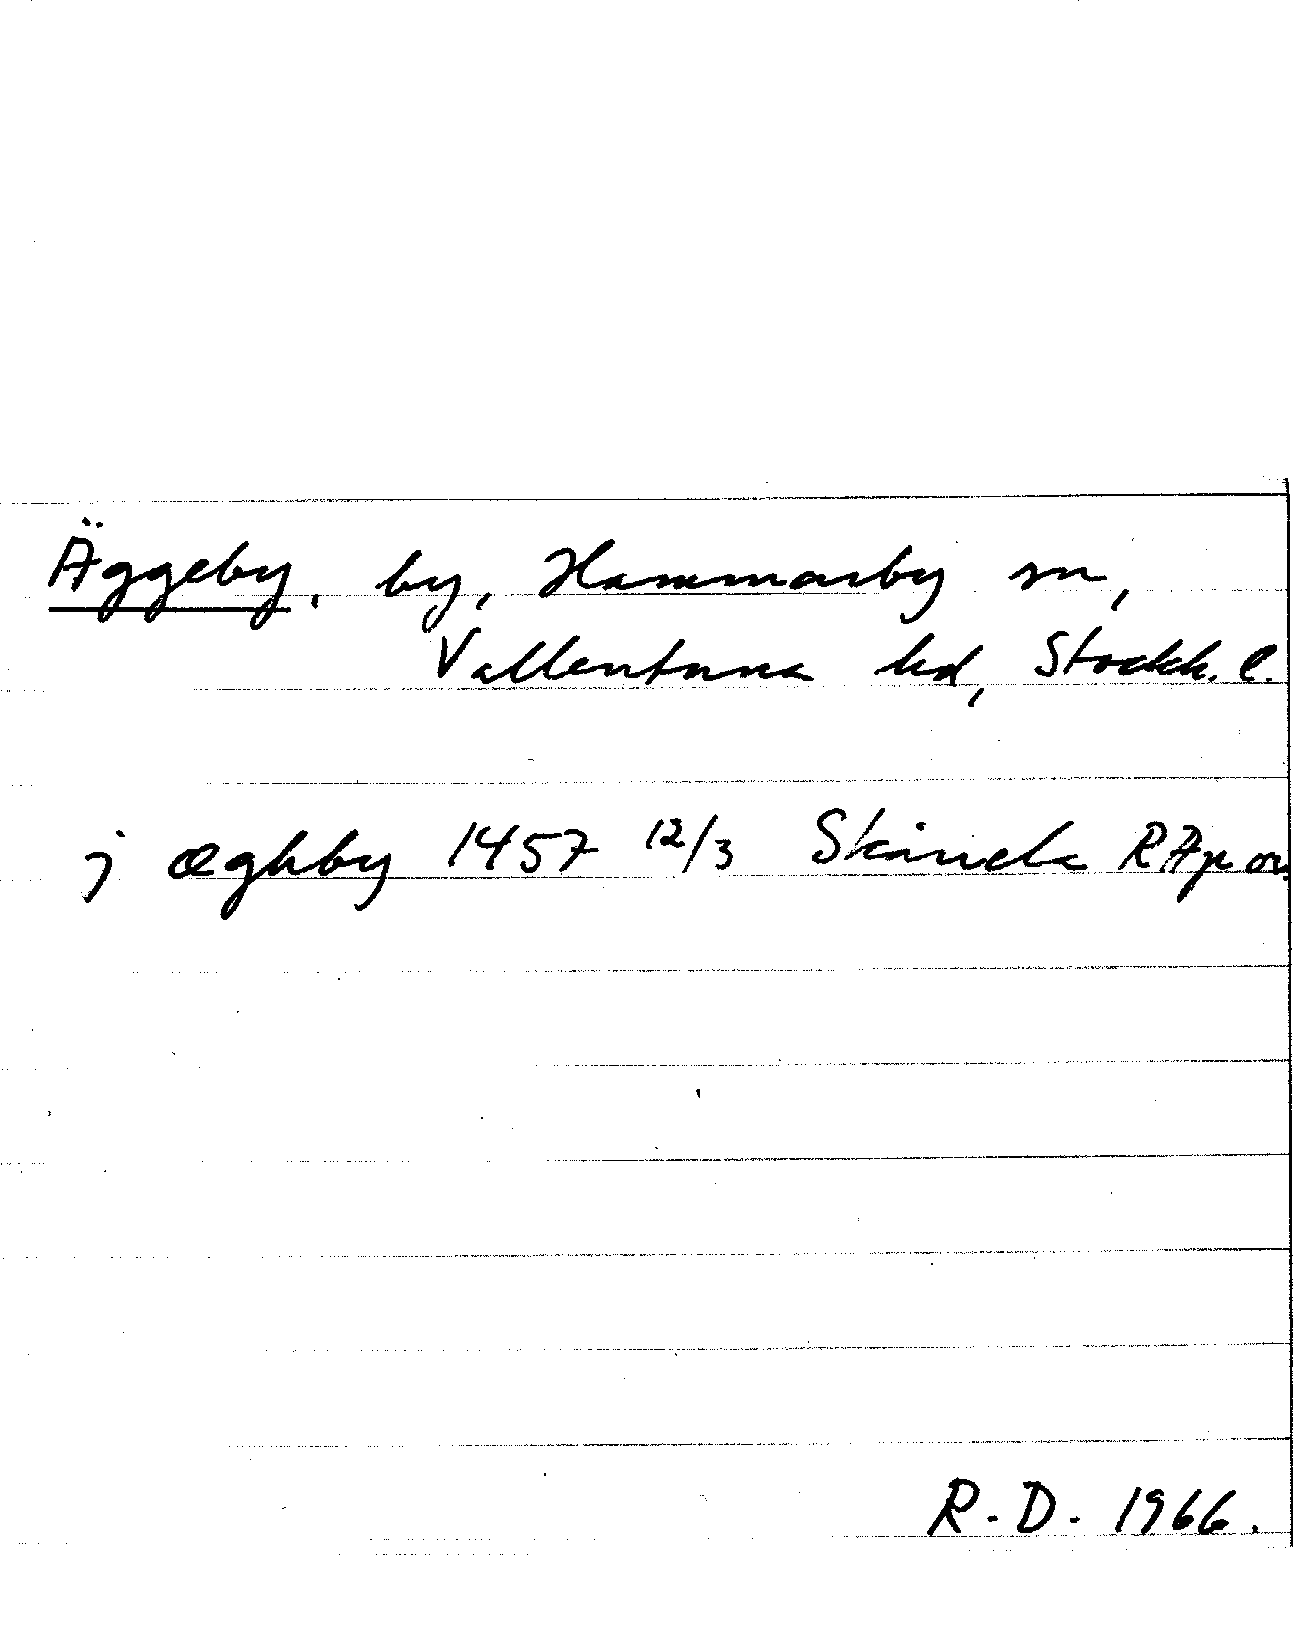 Äggeby, by, Hammarby sn,
Vallentuna hd, Stockh. l.
j æghby 1457 12/3 Skånela RAp or.
R.D. 1966.